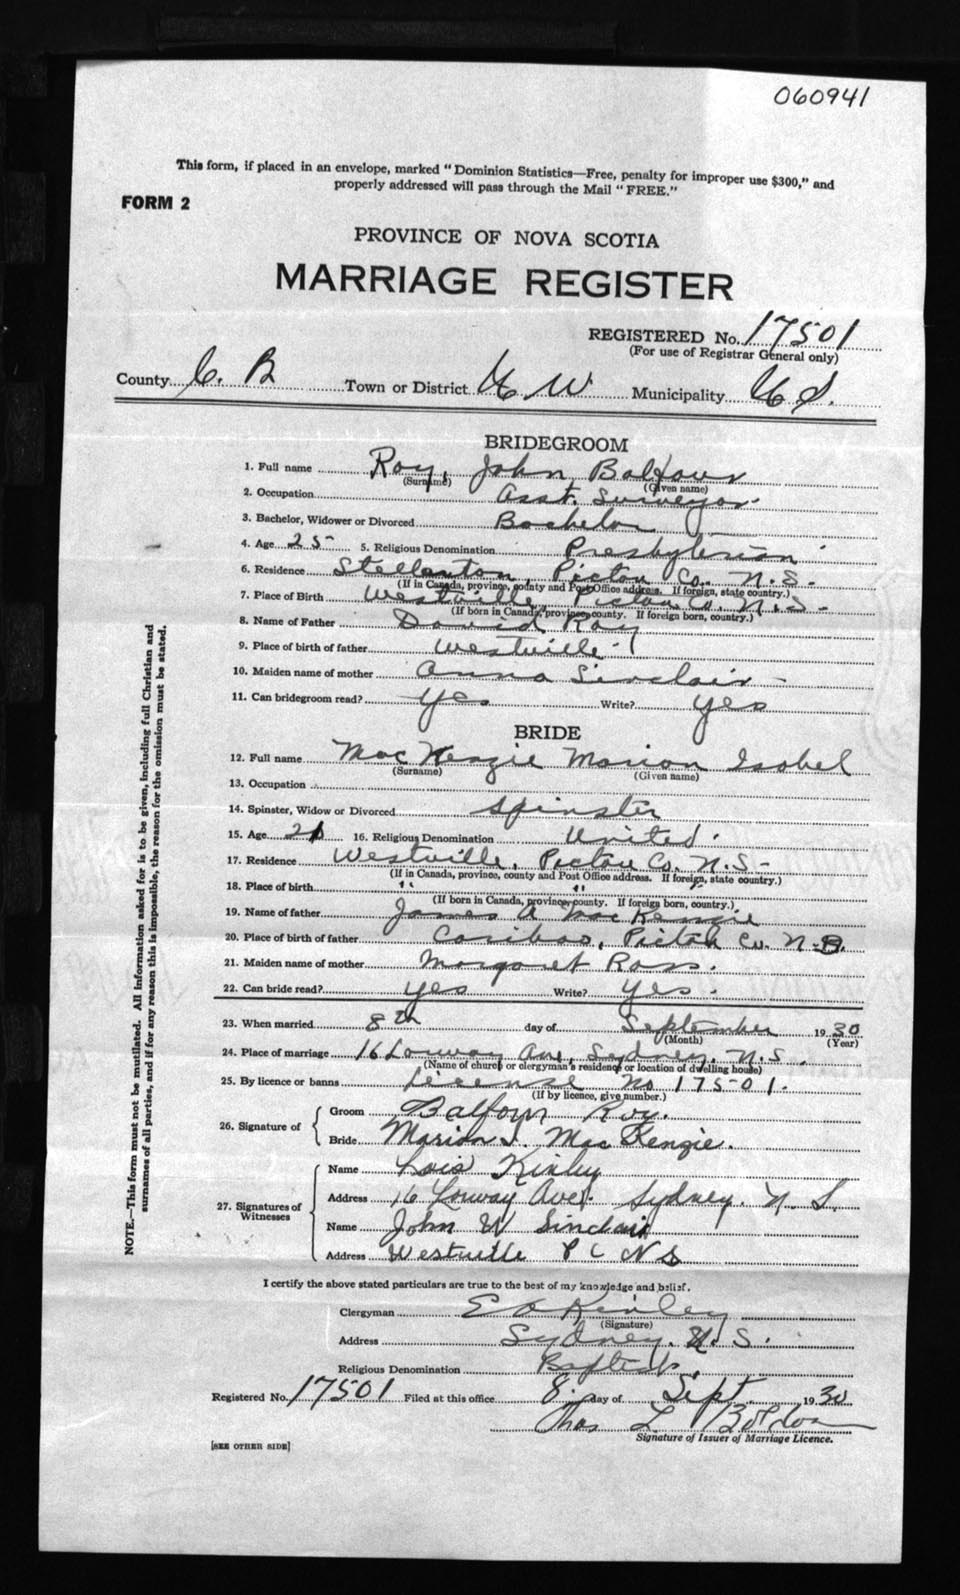 060941
This form, if placed in an envelope, marked "Dominion Statistics—Free, penalty for improper use $300," and
properly addressed will pass through the Mail "FREE."
FORM 2
PROVINCE OF NOVA SCOTIA
MARRIAGE REGISTER
REGISTERED No. 17501
(For use of Registrar General only)
County C. B Town or District Municipality
BRIDEGROOM
1. Full name Roy, John Balfour
(Surname) (Given name)
2. Occupation Asst. Surveyor
3. Bachelor, Widower or Divorced Bachelor
4. Age 25 5. Religious Denomination Presbyterian
6. Residence Stellarton, Pictou Co. N.S.
(If in Canada, province, county and Post Office address. If foreign, state country.)
7. Place of Birth Westville, Pictou Co. N.S.
(If born in Canada, province, county. If foreign born, country.)
8. Name of Father David Roy
9. Place of birth of father Westville
10. Maiden name of mother Anna Sinclair
11. Can bridegroom read? Yes Write? Yes
BRIDE
12. Full name MacKenzie Marion Isobel
(Surname) (Given name)
13. Occupation
14. Spinster, Widow or Divorced Spinster
15. Age 21 16. Religious Denomination United.
17. Residence Westville, Pictou Co. N.S.
(If in Canada, province, county and Post Office address. If foreign, state country.)
18. Place of birth " " "
(If born in Canada, province, county. If foreign born, country.)
19. Name of father James A MacKenzie
20. Place of birth of father Cariboo, Pictou Co. N.S.
21. Maiden name of mother Margaret Ross.
22. Can bride read? Yes Write? Yes.
23. When married 8th day of September 1930
(Month) (Year)
24. Place of marriage 16 Lorway Ave, Sydney, N.S.
(Name of church or clergyman's residence or location of dwelling house)
25. By licence or banns License No 17501.
(If by licence, give number.)
26. Signature of Groom Balfour Roy.
Bride Marion I. MacKenzie.
27. Signatures of Witnesses Name Lois Kinley
Address 16 Lorway Ave. Sydney. N. S.
Name John W Sinclair
Address Westville P C NS
I certify the above stated particulars are true to the best of my knowledge and belief.
Clergyman Kinley
(Signature)
Address Sydney. N. S.
Religious Denomination Baptist.
Registered No. 17501 Filed at this office 8. day of Sept 1930
Thos L
Signature of Issuer of Marriage Licence.
[SEE OTHER SIDE]
NOTE.—This form must not be mutilated. All information asked for is to be given, including full Christian and
surnames of all parties, and if for any reason this is impossible, the reason for the omission must be stated.